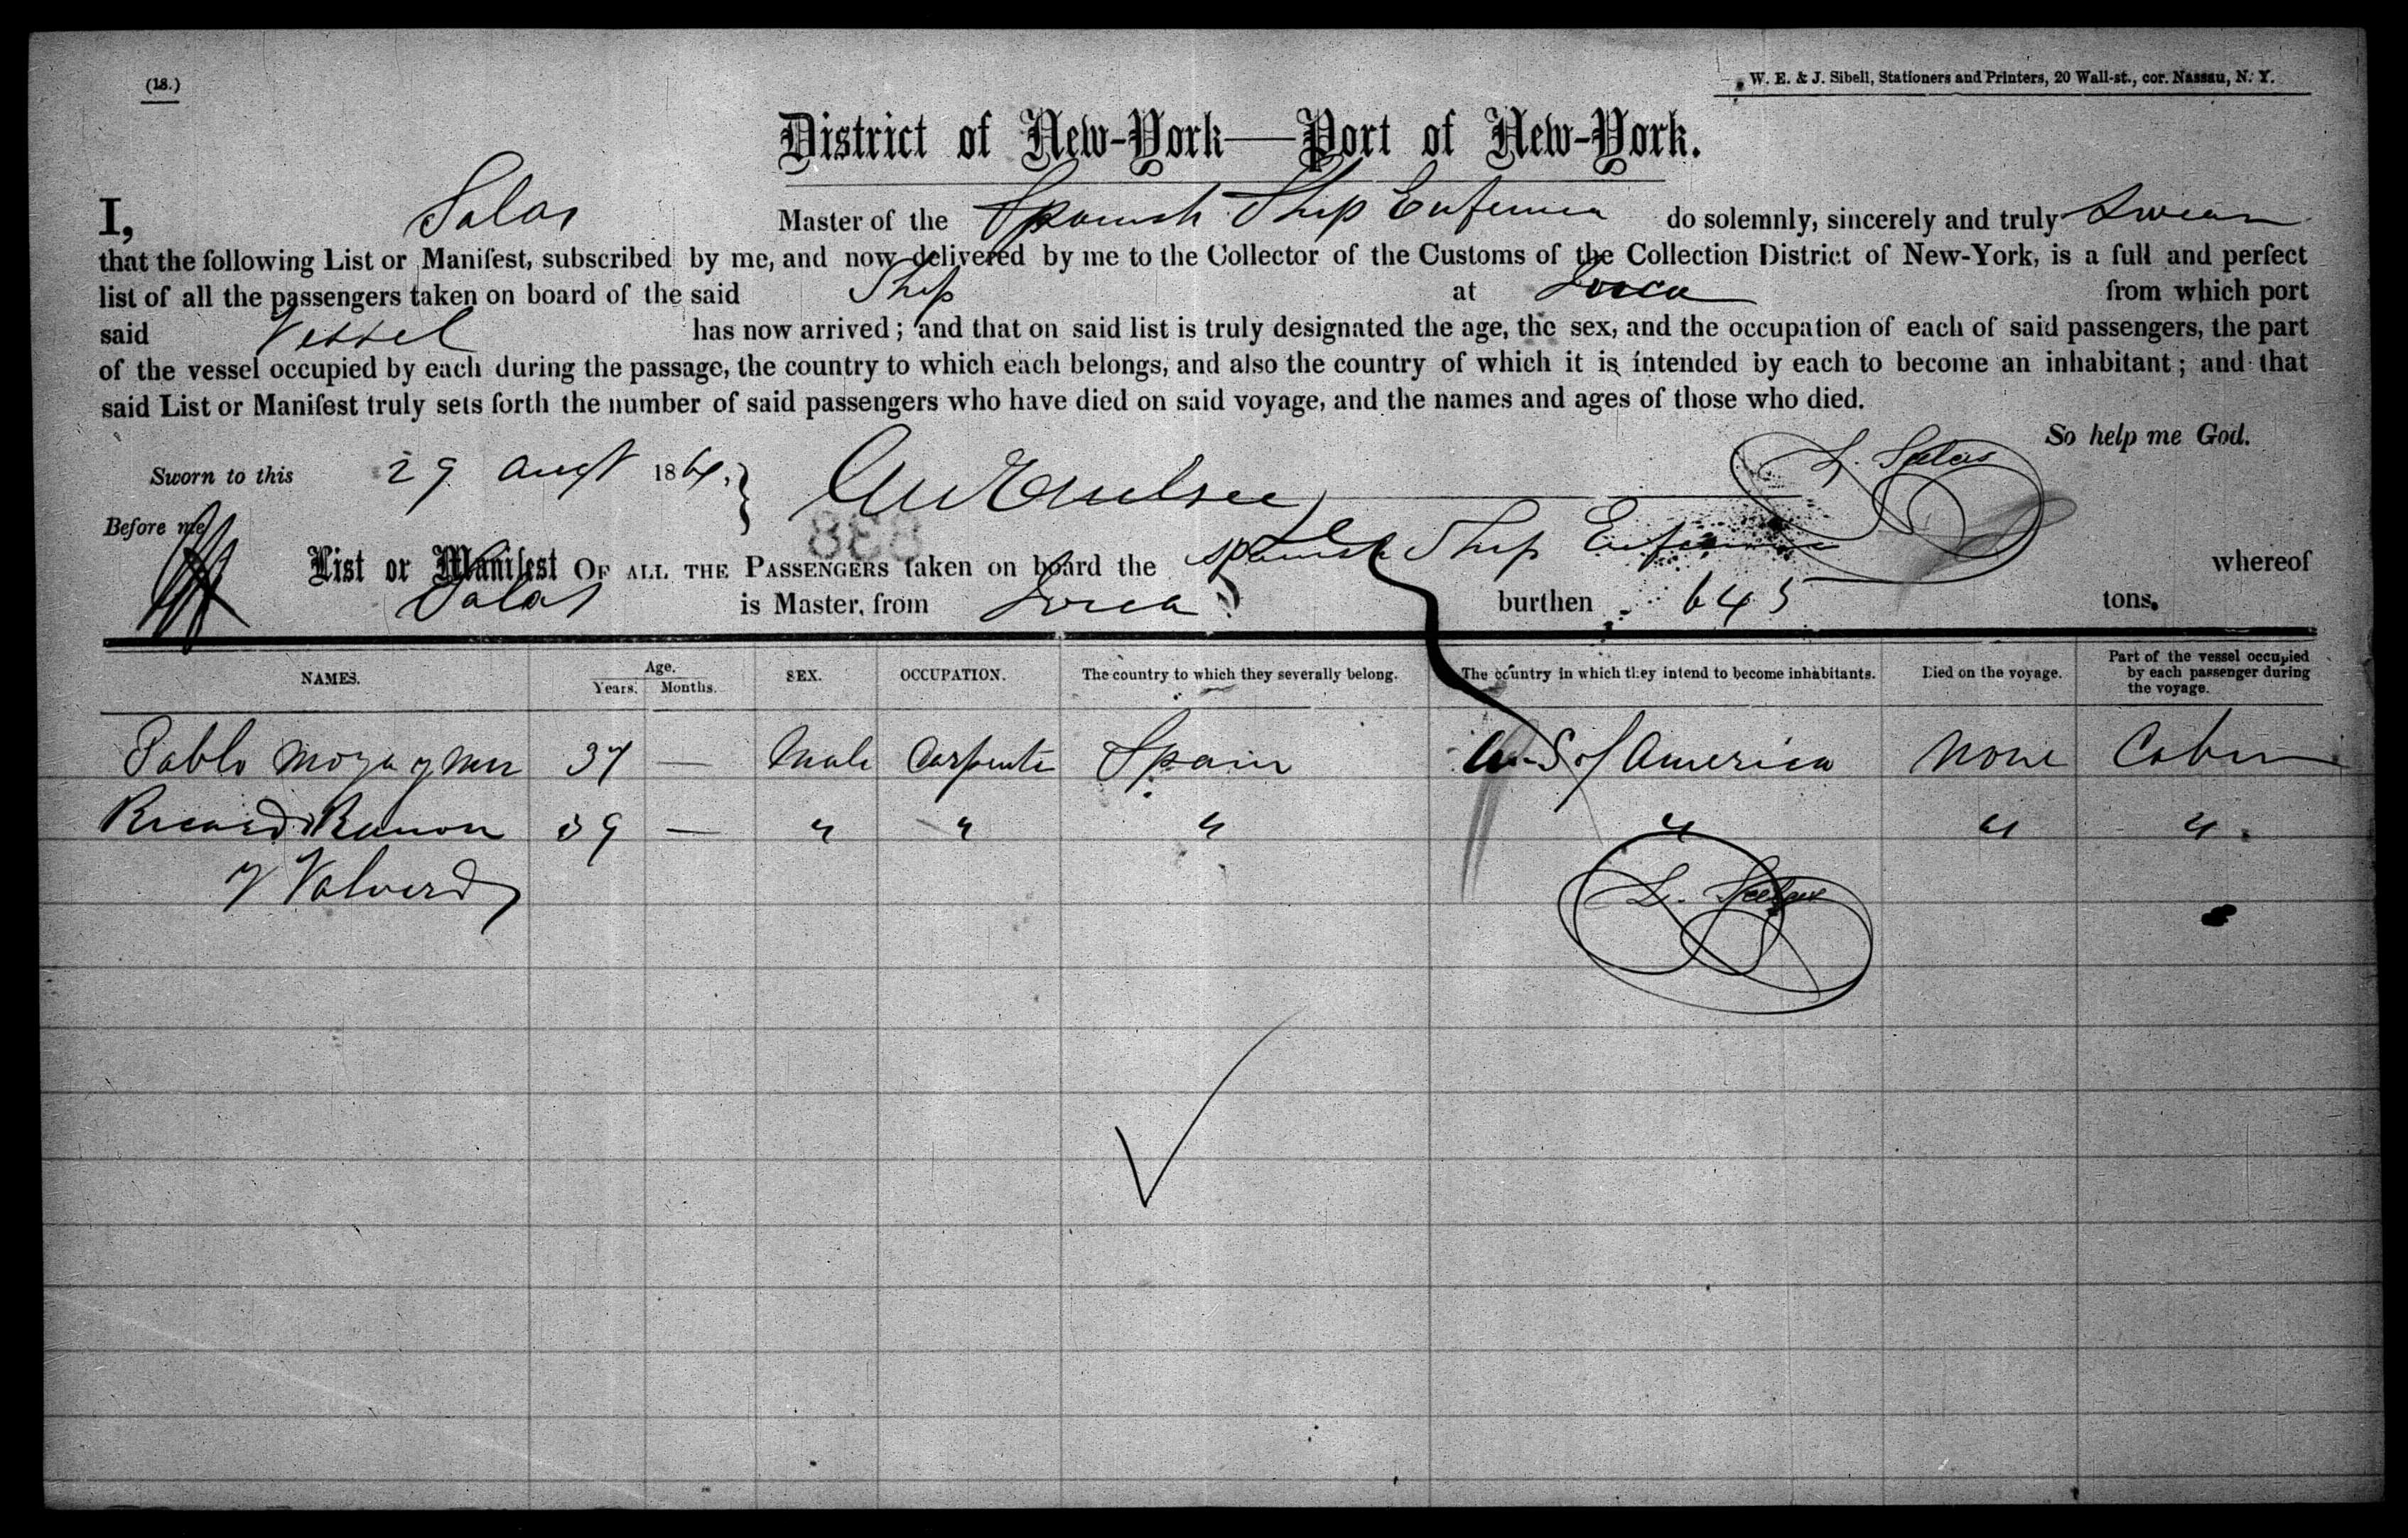 (18.)
W. E. & J. Sibell, Stationers and Printers, 20 Wall-st., cor. Nassau, N. Y.
District of New-York—Port of New-York.
I, Salas Master of the Spanish Ship Eufemia do solemnly, sincerely and truly Swear
that the following List or Manifest, subscribed by me, and now delivered by me to the Collector of the Customs of the Collection District of New-York, is a full and perfect
list of all the passengers taken on board of the said Ship at from which port
said Vessel has now arrived; and that on said list is truly designated the age, the sex, and the occupation of each of said passengers, the part
of the vessel occupied by each during the passage, the country to which each belongs, and also the country of which it is intended by each to become an inhabitant; and that
said List or Manifest truly sets forth the number of said passengers who have died on said voyage, and the names and ages of those who died.
So help me God.
Sworn to this 29 Augt 1864. L. Salas
Before me
838
List or Manifest OF ALL THE PASSENGERS taken on board the Spanish Ship Eufemia whereof
Salas is Master, from burthen 645 tons.
NAMES. Age. Years. Months. SEX. OCCUPATION. The country to which they severally belong. The country in which they intend to become inhabitants. Died on the voyage. Part of the vessel occupied by each passenger during the voyage.
Pablo Moya y 37 — Male Carpenter Spain U.S of America None Cabin
Ricardo Ramon 39 — " " " " " "
y Valverdy
L. Salas